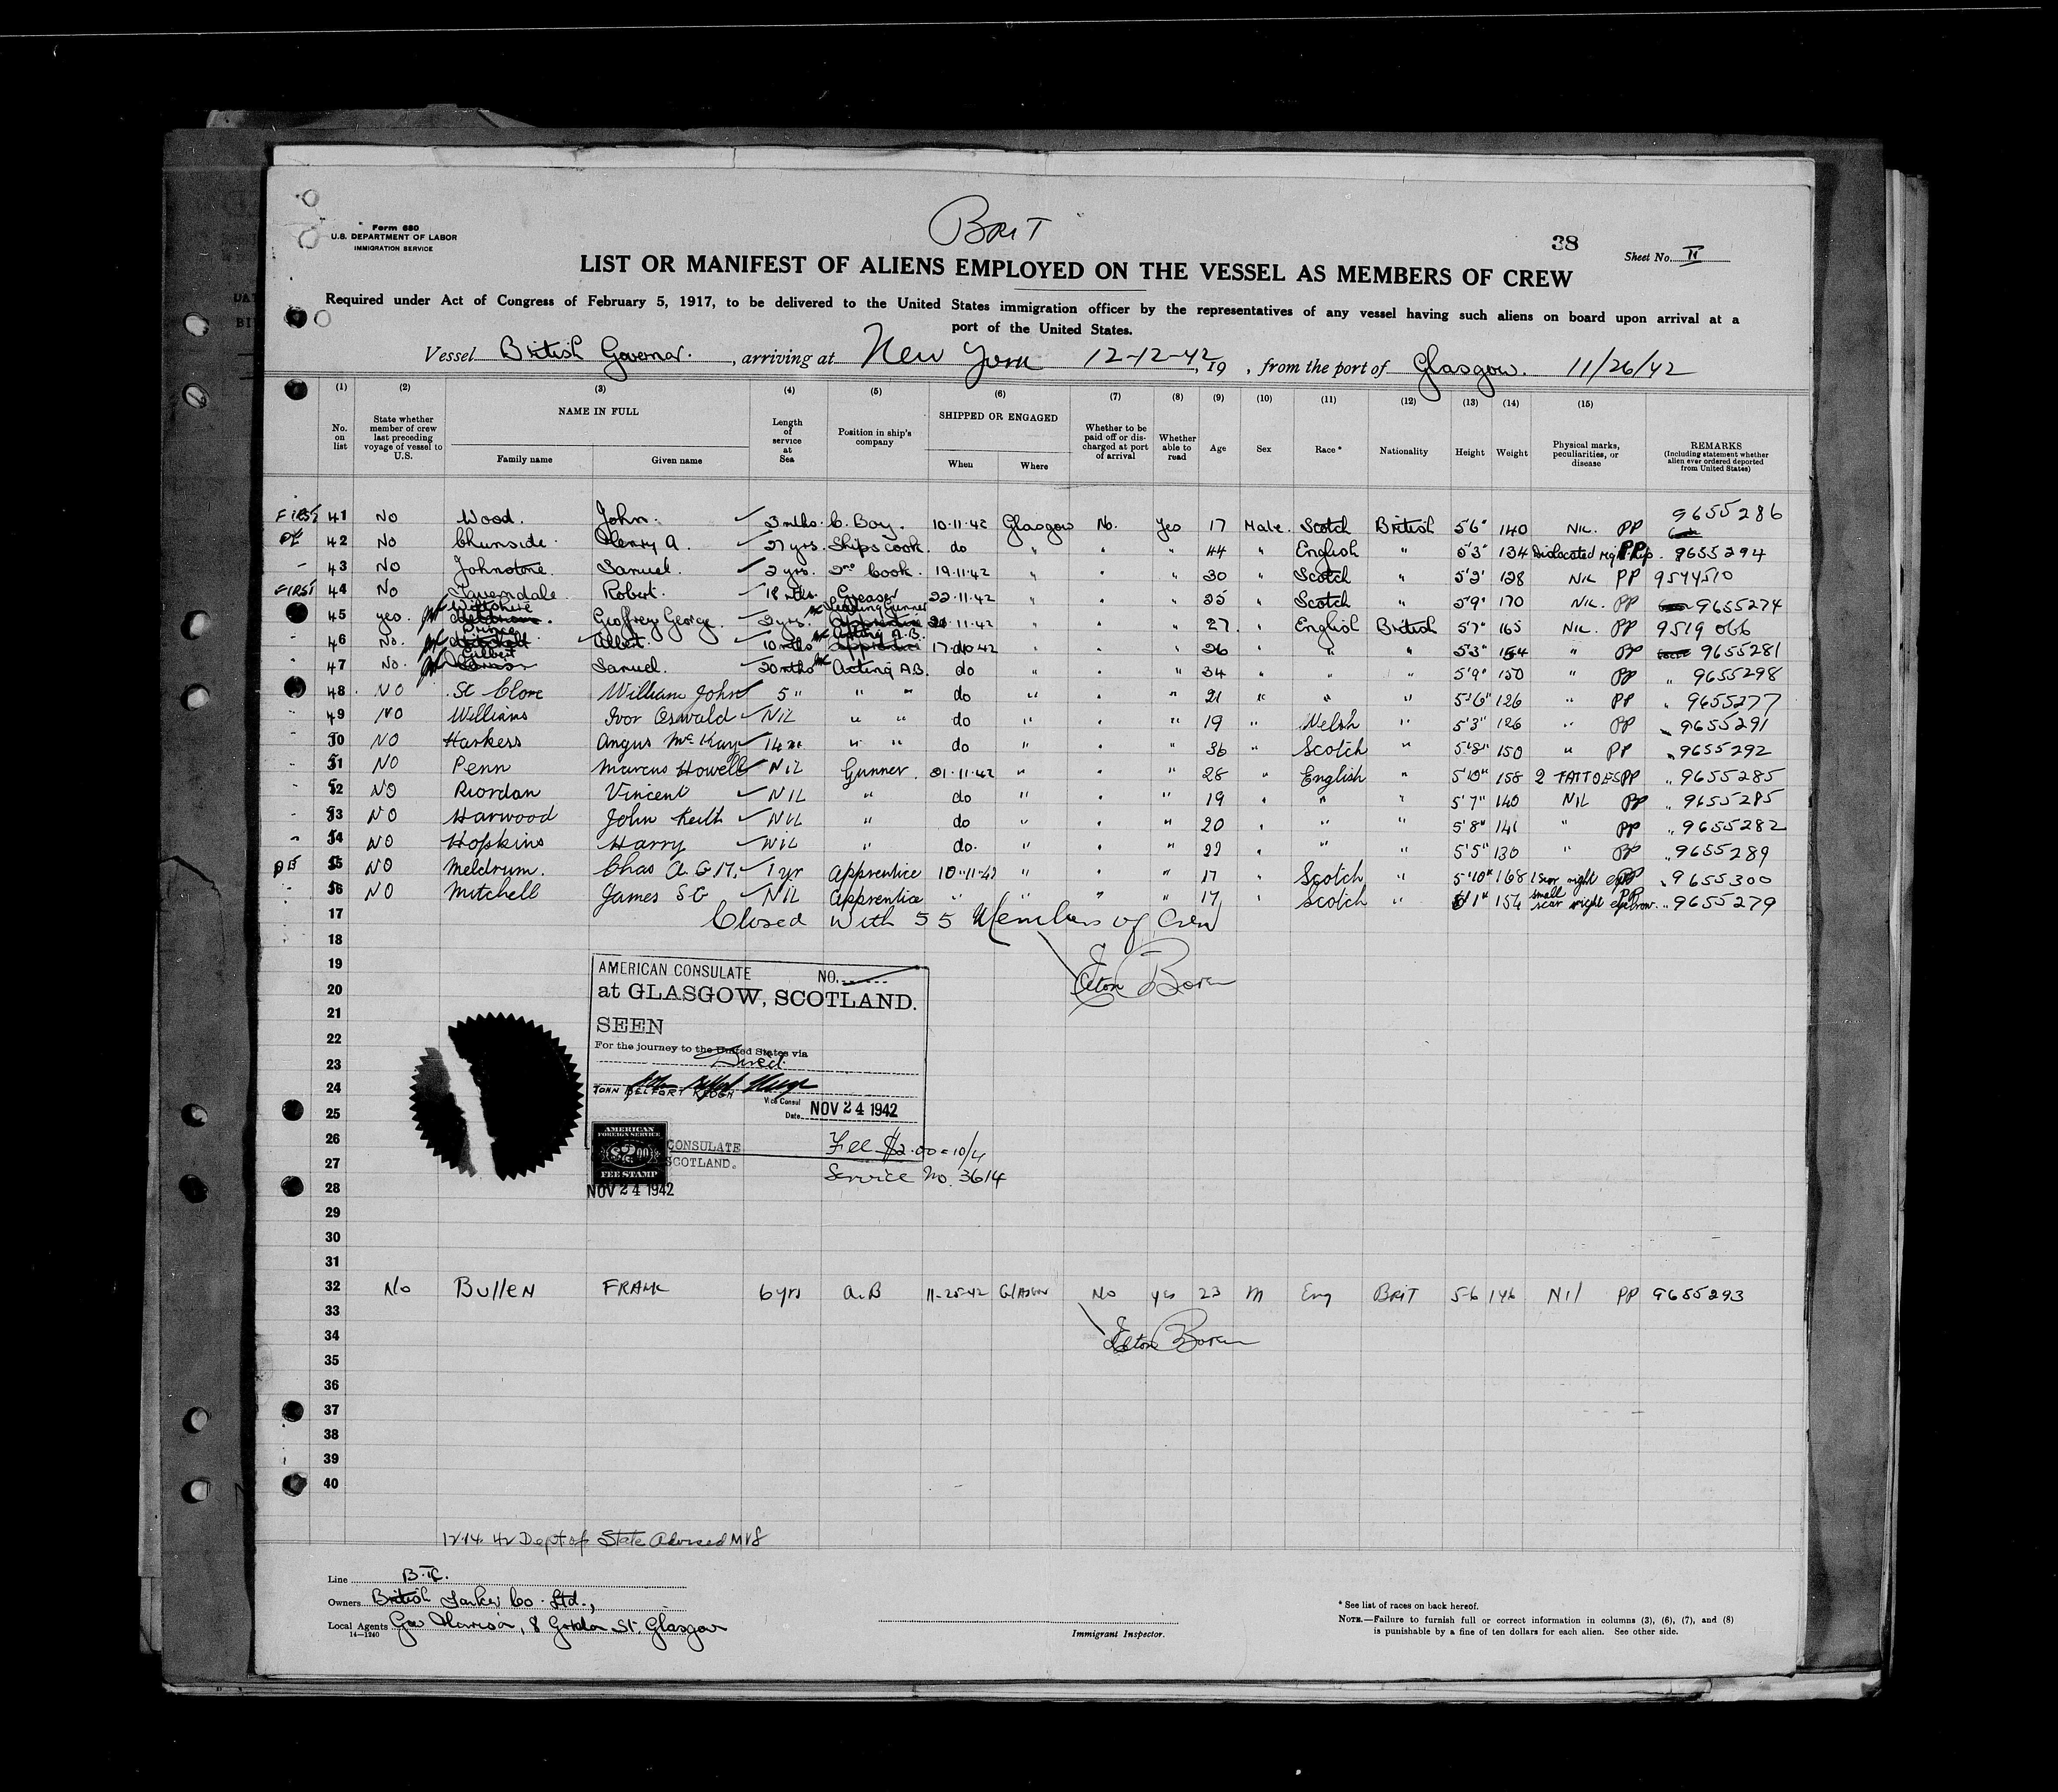 BRIT
Form 680
U.S. DEPARTMENT OF LABOR
IMMIGRATION SERVICE
38
Sheet No. II
LIST OR MANIFEST OF ALIENS EMPLOYED ON THE VESSEL AS MEMBERS OF CREW
Required under Act of Congress of February 5, 1917, to be delivered to the United States immigration officer by the representatives of any vessel having such aliens on board upon arrival at a
port of the United States.
Vessel British Governor. , arriving at New York 12-12-42, 19 , from the port of Glasgow. 11/26/42
(1) (2) (3) (4) (5) (6) (7) (8) (9) (10) (11) (12) (13) (14) (15)
No. on list
State whether member of crew last preceding voyage of vessel to U.S.
NAME IN FULL
Family name Given name
Length of service at Sea
Position in ship's company
SHIPPED OR ENGAGED
When Where
Whether to be paid off or discharged at port of arrival
Whether able to read
Age Sex Race * Nationality Height Weight
Physical marks, peculiarities, or disease
REMARKS
(Including statement whether alien ever ordered deported from United States)
FIRST 41 No Wood. John. 3 mths. C. Boy. 10.11.42 Glasgow No. Yes 17 Male. Scotch British 5'6" 140 Nil. PP 9655286
42 No Chirnside. Henry A. 27 yrs. Ships Cook. do " " " 44 " English " 5'3" 134 Dislocated right hip. PP 9655294
43 No Johnstone. Samuel. 2 yrs. 2nd Cook. 19.11.42 " " " 30 " Scotch " 5'2" 128 Nil PP 9544510
FIRST 44 No Tavendale. Robert. 18 mths. Greaser 22.11.42 " " " 25 " Scotch " 5'9" 170 Nil. PP 9655274
45 yes. Wiltshire Geoffrey George. 2 yrs. Leading Gunner 11.42 " " " 27. " English British 5'7" 165 Nil. PP 9519066
46 No. Prince Albert. 10 mths Acting A.B. 17. 42 " " " 26 " " " 5'3" 154 " PP 9655281
47 No. Gilbert Samuel. 20 mths Acting A.B. do " " " 34 " " " 5'9" 150 " PP " 9655298
48. NO St Clare William John 5 " " " do " " " 21 " " " 5'6" 126 " PP " 9655277
49 NO Williams Ivor Oswald NIL " " do " " " 19 " Welsh " 5'3" 126 " PP " 9655291
50 NO Harkess Angus McKay 14 " " do " " " 36 " Scotch " 5'8" 150 " PP " 9655292
51 NO Penn Marcus Howell NIL Gunner. 21.11.42 " " " 28 " English " 5'10" 158 2 TATTOES PP " 9655285
52 NO Riordan Vincent NIL " do " " " 19 " " " 5'7" 140 NIL PP " 9655285
53 NO Harwood John Keith NIL " do " " " 20 " " " 5'8" 141 " PP " 9655282
54 NO Hopkins Harry NIL " do. " " " 22 " " " 5'5" 130 " PP " 9655289
55 NO Meldrum. Chas A. G. M. 1 yr Apprentice 10-11-42 " " " 17 " Scotch " 5'10" 168 1 scar right eye PP " 9655300
56 NO Mitchell James S G NIL Apprentice " " " " 17 " Scotch " 1" 154 small scar right eyebrow PP " 9655279
17 Closed With 55 Members of Crew
18
19
20
21
22
23
24
25
26
27
28
29
30
31
AMERICAN CONSULATE NO.
at GLASGOW, SCOTLAND.
SEEN
For the journey to the United States via
Direct
JOHN BELFORT KEOGH
Vice Consul
Date NOV 24 1942
AMERICAN
FOREIGN SERVICE
$2.00
FEE STAMP
CONSULATE
SCOTLAND.
NOV 24 1942
Fee $2.00 = 10/4
Service No. 3614
32 No Bullen FRANK 6 yrs A.B 11-25-42 Glasgow No yes 23 M Eng BRIT 5-6 146 Nil PP 9655293
33
34
35
36
37
38
39
40
12.14.42 Dept of State Advised MVS
Line B.T.C.
Owners British Tanker Co. Ltd.,
Local Agents Geo Harrison, 8 Gordon St. Glasgow
14—1240
Immigrant Inspector.
* See list of races on back hereof.
NOTE.—Failure to furnish full or correct information in columns (3), (6), (7), and (8)
is punishable by a fine of ten dollars for each alien. See other side.